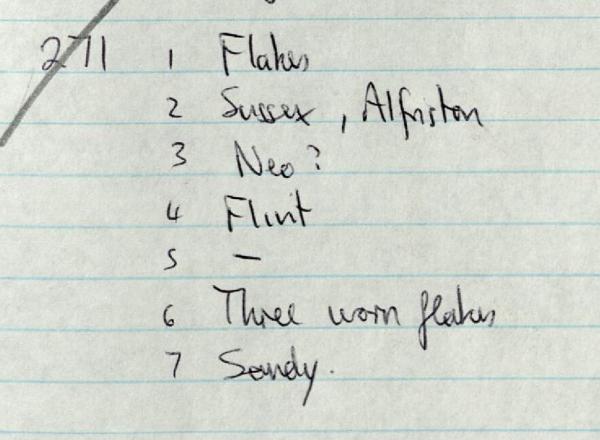 271 1 Flakes
2 Sussex, Alfriston
3 Neo?
4 Flint
5 —
6 Three worn flakes
7 Sandy.